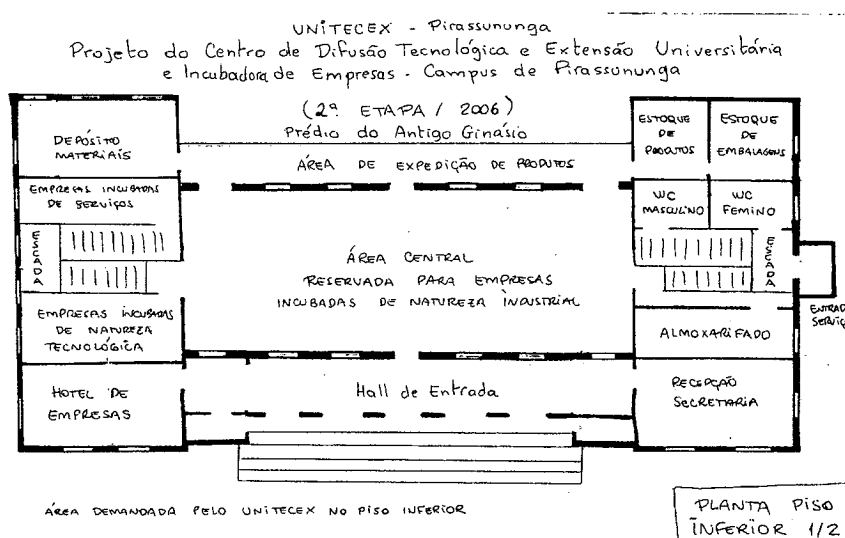 UNITECEX - Pirassununga
Projeto do Centro de Difusão Tecnológica e Extensão Universitária
e Incubadora de Empresas - Campus de Pirassununga
(2ª ETAPA / 2006)
Prédio do Antigo Ginásio
DEPÓSITO
MATERIAIS
ÁREA DE EXPEDIÇÃO DE PRODUTOS
ESTOQUE
DE
PRODUTOS
ESTOQUE
DE
EMBALAGENS
EMPRESAS INCUBADAS
DE SERVIÇOS
WC
MASCULINO
WC
FEMINO
ESCADA
ÁREA CENTRAL
RESERVADA PARA EMPRESAS
INCUBADAS DE NATUREZA INDUSTRIAL
ESCADA
EMPRESAS INCUBADAS
DE NATUREZA
TECNOLÓGICA
ENTRAD
SERVIÇ
ALMOXARIFADO
HOTEL DE
EMPRESAS
Hall de Entrada
RECEPÇÃO
SECRETARIA
ÁREA DEMANDADA PELO UNITECEX NO PISO INFERIOR
PLANTA PISO
INFERIOR 1/2